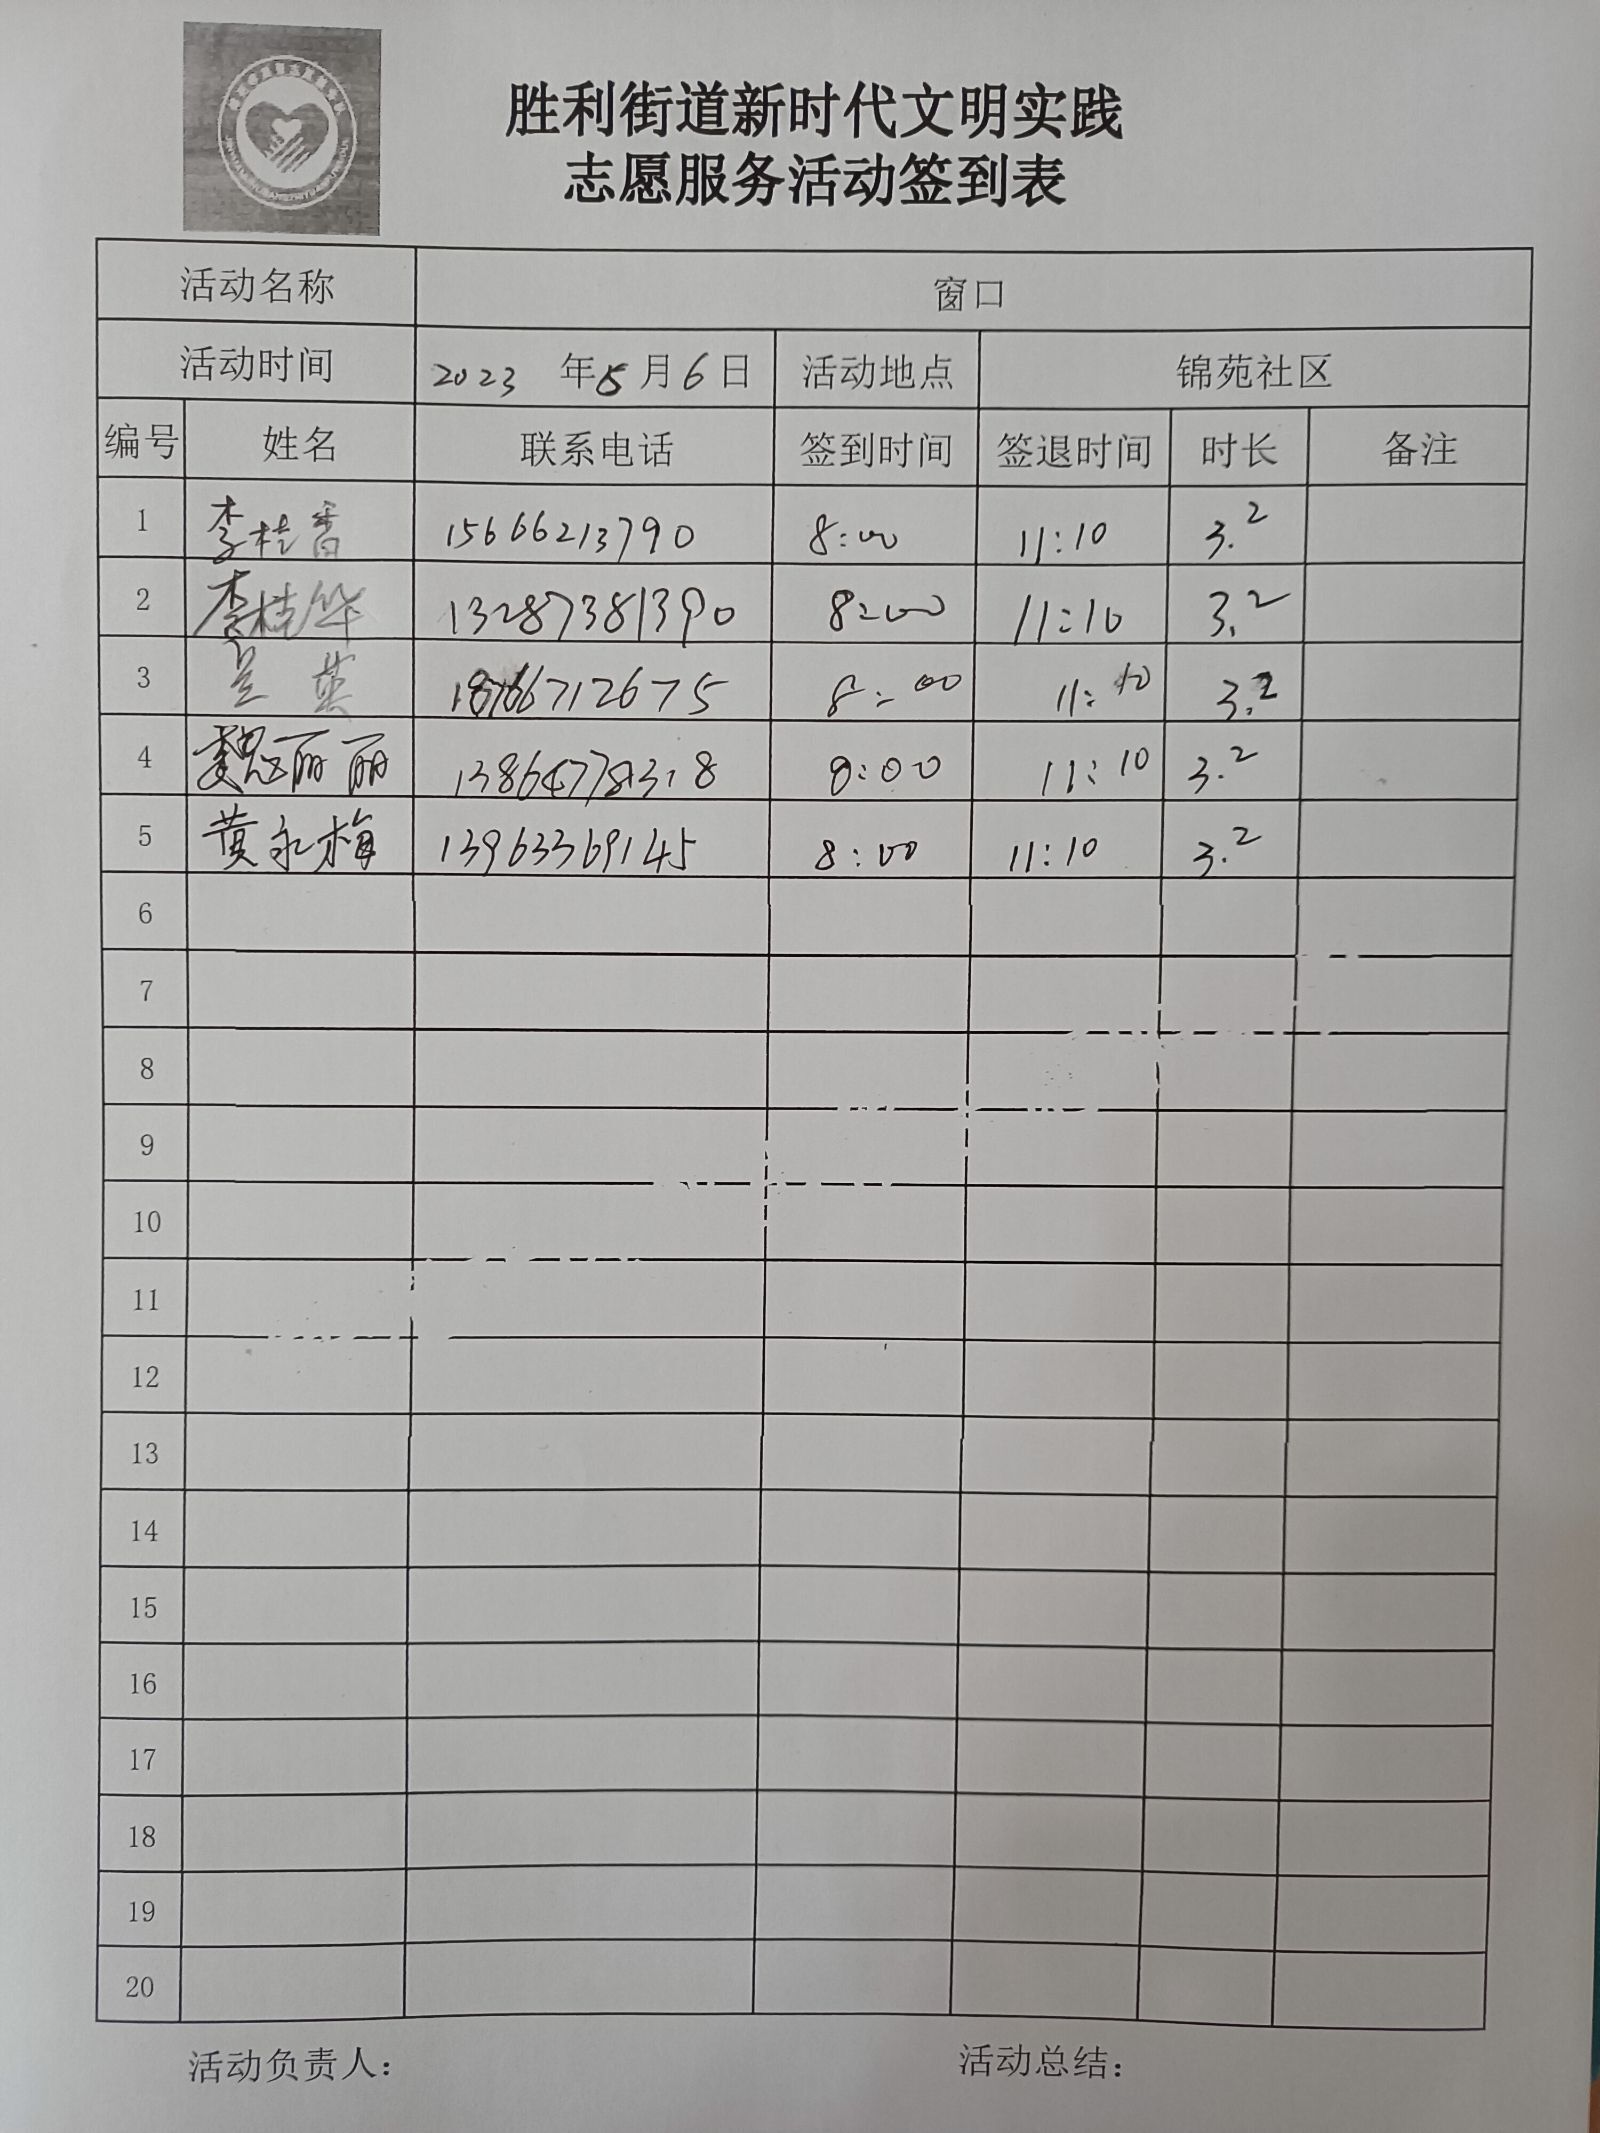 胜利街道新时代文明实践
志愿服务活动签到表
活动名称 窗口
活动时间 2023 年5月6日 活动地点 锦苑社区
编号 姓名 联系电话 签到时间 签退时间 时长 备注
1 李桂香 15666213790 8:00 11:10 3.2
2 李桂华 13287381390 8:00 11:10 3.2
3 英 18766712675 8:00 11:10 3.2
4 魏丽丽 8:00 11:10 3.2
5 黄永梅 13963369145 8:00 11:10 3.2
6
7
8
9
10
11
12
13
14
15
16
17
18
19
20
活动负责人: 活动总结: